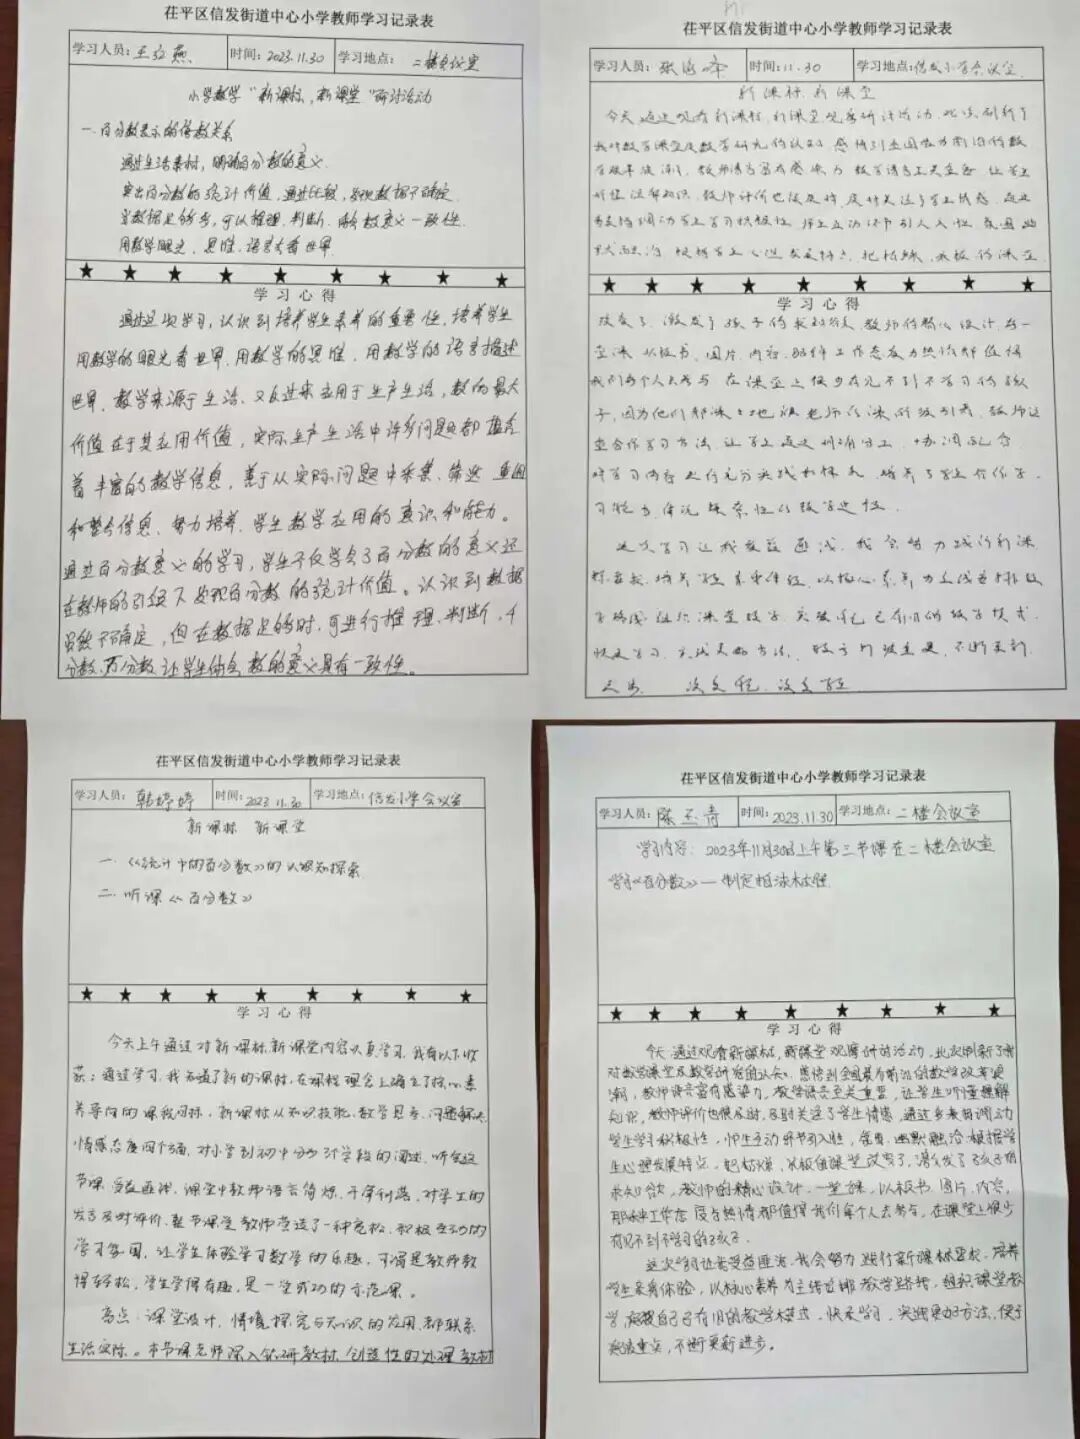 茌平区信发街道中心小学教师学习记录表
学习人员：王立燕 时间：2023.11.30 学习地点：二楼会议室
小学数学“新课标，新课堂”研讨活动
一、百分数表示的倍数关系
通过生活素材，明确百分数的意义
突出百分数的统计价值，通过比较，发现数据不确定
当数据足够多，可以推理，判断，体会数意义一致性
用数学眼光、思维、语言去看世界
★ ★ ★ ★ ★ ★ ★ ★ ★
学习心得
通过这次学习，认识到培养学生素养的重要性，培养学生
用数学的眼光看世界，用数学的思维，用数学的语言描述
世界，数学来源于生活、又反过来应用于生产生活，数的最大
价值在于其应用价值，实际生产生活中许多问题都蕴含
着丰富的数学信息，善于从实际问题中采集、筛选
和整合信息、努力培养学生数学应用的意识和能力。
通过百分数意义的学习，学生不仅学会了百分数的意义还
在教师的引领下发现百分数的统计价值。认识到数据
虽然不确定，但在数据足够时，可进行推理、判断，千
分数、万分数让学生体会数的意义具有一致性。
茌平区信发街道中心小学教师学习记录表
学习人员：张海峰 时间：11.30 学习地点：信发小学会议室
新课标 新课堂
今天通过观看新课标，新课堂观摩研讨活动，此次刷新了
我对数学课堂及数学研究的认知，感悟到全国最为前沿的数
学改革浪潮，教师语言富有感染力，数学语言至关重要，让学生
听懂理解知识，教师评价也很及时，及时关注了学生情感，通过
多表扬调动学生学习积极性，师生互动环节引人入胜，诙谐幽
默融洽，根据学生心理发展特点，把枯燥、呆板的课堂
★ ★ ★ ★ ★ ★ ★ ★ ★
学习心得
改变了，激发了孩子的求知欲，教师的精心设计，每一
堂课，从板书，图片，内容，那种工作态度与热情都值得
我们每个人去参与，在课堂上很少有见不到不学习的孩
子，因为他们都深深地被老师的课所吸引着，教师这
习能力，体现探索性的数学过程。
这次学习让我受益匪浅，我会努力践行新课
标要求，培养学生素养体验，以核心素养为主线安排教
学路线，组织课堂教学，突破自己已有旧的教学模式，
快速学习，实践更好方法，便于打破重点，不断更新
茌平区信发街道中心小学教师学习记录表
学习人员：韩婷婷 时间：2023.11.30 学习地点：信发小学会议室
新课标 新课堂
一、《统计中的百分数》的认识知探索
二、听课《百分数》
★ ★ ★ ★ ★ ★ ★ ★ ★
学习心得
今天上午通过对新课标新课堂内容认真学习，我有以下收
获：通过学习，我知道了新的课标，在课程理念上确立了核心素
养导向的课程目标，新课标从知识技能、数学思考、问题解决、
情感态度四个方面，对小学到初中分为3个学段的阐述，听完这
节课受益匪浅，课堂中教师语言简炼，干净利落，对学生的
发言及时评价，整节课堂教师营造了一种宽松、积极互动的
学习氛围，让学生体验学习数学的乐趣，可谓是教师教
得轻松，学生学得有趣，是一堂成功的示范课。
亮点：课堂设计，情境探究与知识的应用，都联系
生活实际。本节课老师深入钻研教材，创造性的处理教材
茌平区信发街道中心小学教师学习记录表
学习人员：陈玉青 时间：2023.11.30 学习地点：二楼会议室
学习内容：2023年11月30日上午第三节课在二楼会议室
学习《百分数》—制定相决标准
★ ★ ★ ★ ★ ★ ★ ★ ★
学习心得
今天通过观看新课标，新课堂观摩研讨活动，此次刷新了我
对数学课堂及数学研究的认知，感悟到全国最为前沿的数学改革浪
潮，教师语言富有感染力，教学语言至关重要，让学生听懂理解
知识，教师评价也很及时，及时关注了学生情感，通过多表扬调动
学生学习积极性，师生互动环节引人入胜，诙谐、幽默融洽，根据学
生心理发展特点，把枯燥，呆板的课堂改变了，激发了孩子的
求知欲，教师的精心设计，一堂课，从板书，图片，内容，
那种工作态度与热情都值得我们每个人去参与，在课堂上很少
有见不到不学习的孩子。
这次学习让我受益匪浅，我会努力践行新课标要求，培养
学生素养体验，以核心素养为主线安排教学路线，组织课堂教
学，突破自己已有旧的教学模式，快速学习，实践更好方法，便于
突破重点，不断更新进步。